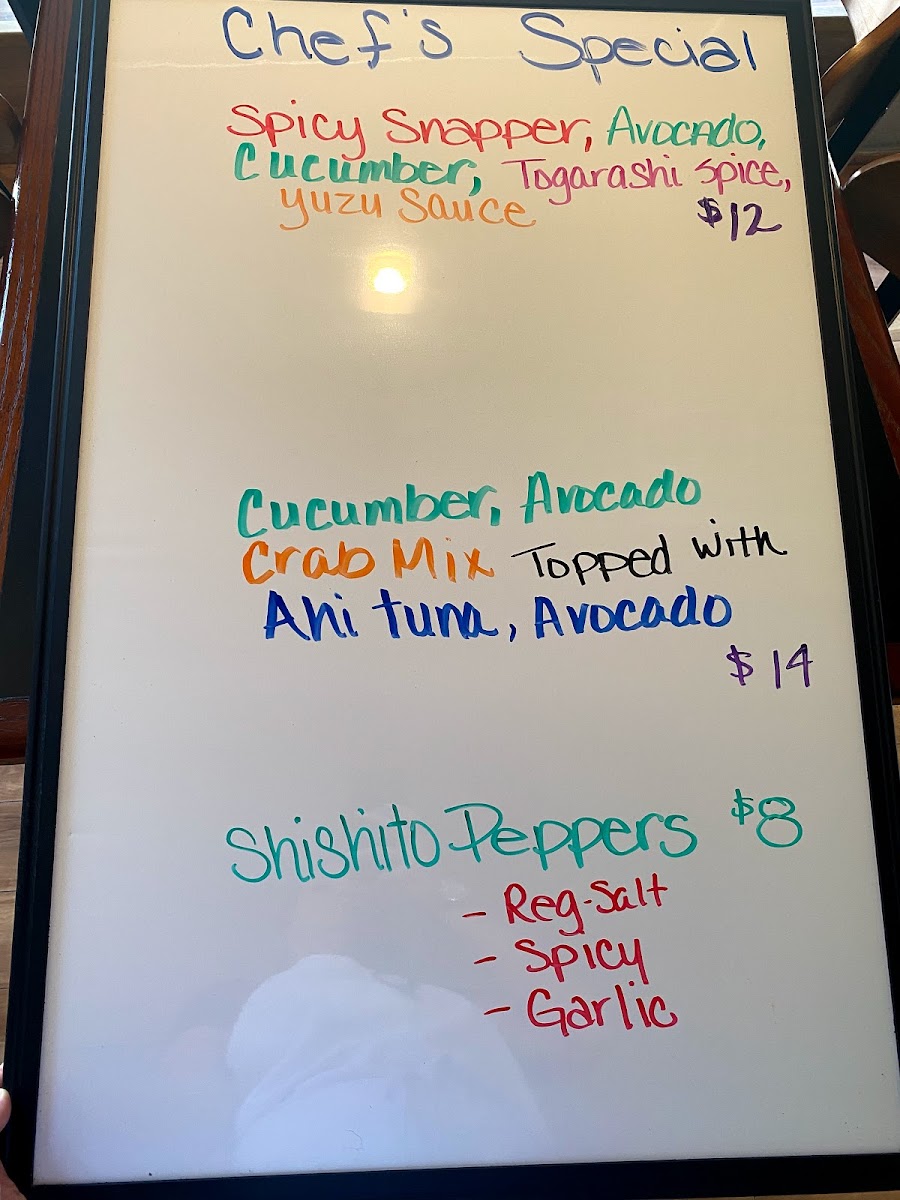 Chef's Special
Spicy Snapper, Avocado,
Cucumber, Togarashi Spice,
Yuzu Sauce $12
Cucumber, Avocado
Crab Mix Topped with
Ahi tuna, Avocado
$14
Shishito Peppers $8
- Reg-Salt
- Spicy
- Garlic